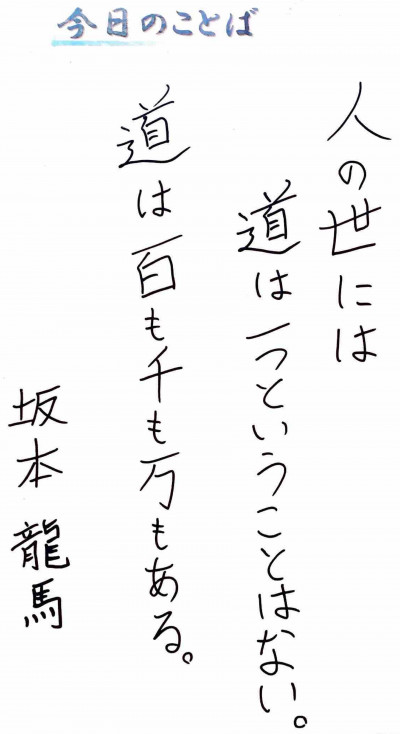 今日のことば
人の世には
道は一つということはない。
道は百も千も万もある。
坂本 龍馬